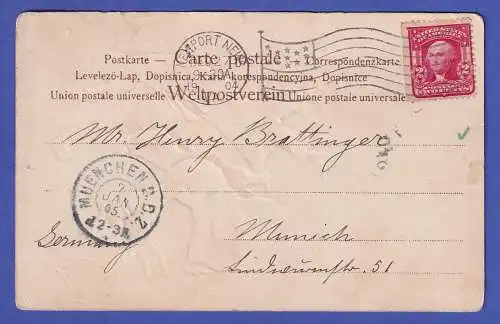 Postkarte — Carte postale — Correspondenzkarte
Levelező-Lap, Dopisnica, Karta korespondencyjna, Dopisnice
Union postale universelle Weltpostverein Unione postale universale
PORT NEW
04
2
Mr. Henry Brattinger
MUENCHEN
7
JAN
05
2-3N
Germany
Munich
Lindwurmstr. 51